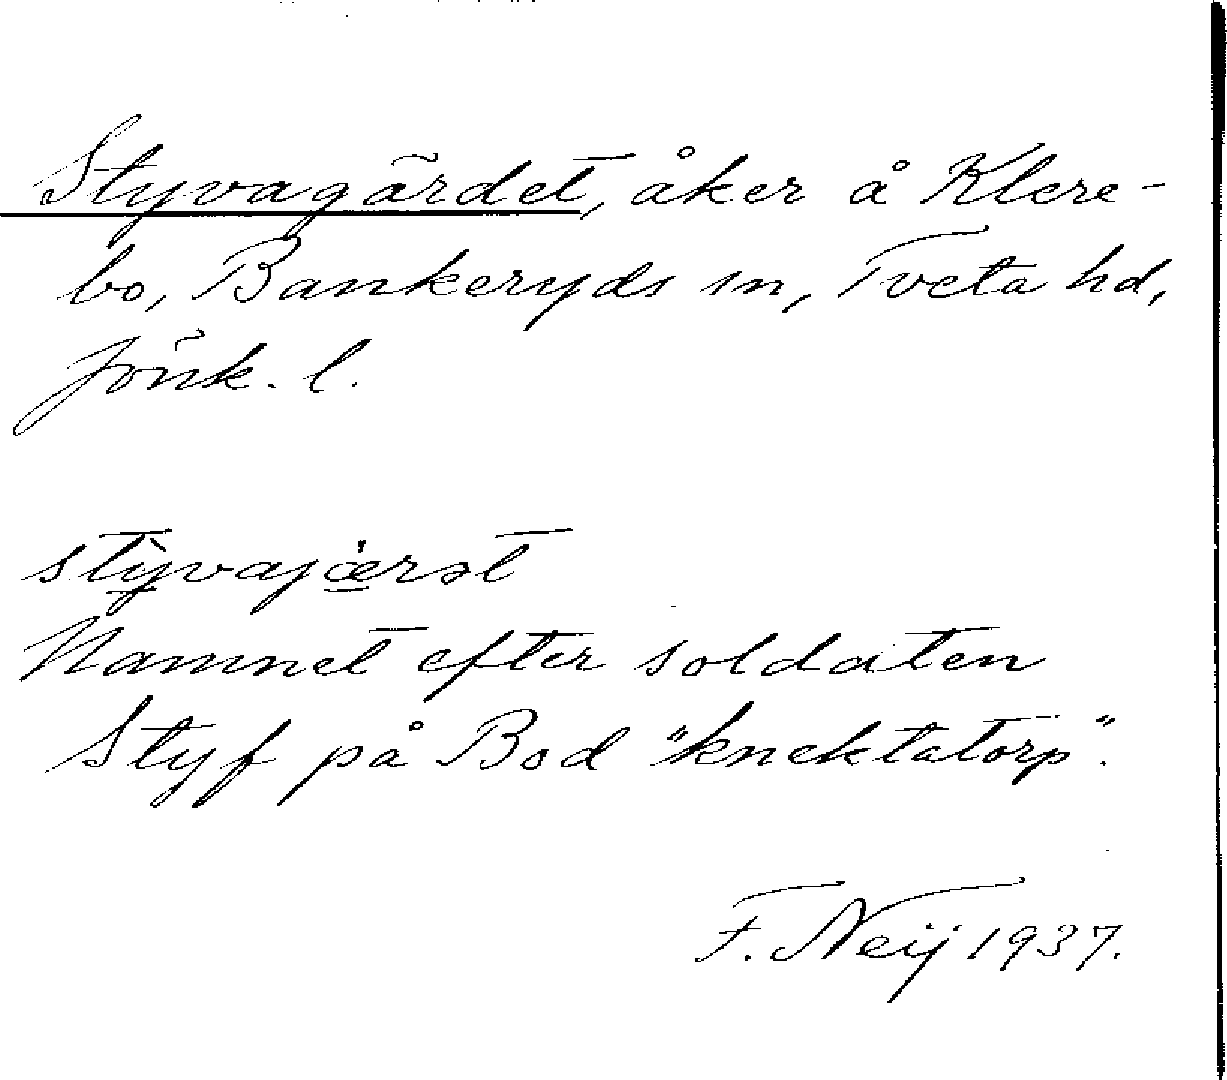 Styvagärdet, åker å Klere-
bo, Bankeryds sn, Tveta hd,
Jönk. l.
stỳvajæ̀rət
Namnet efter soldaten
Styf på Bod "knektatorp".
F. Neij 1937.